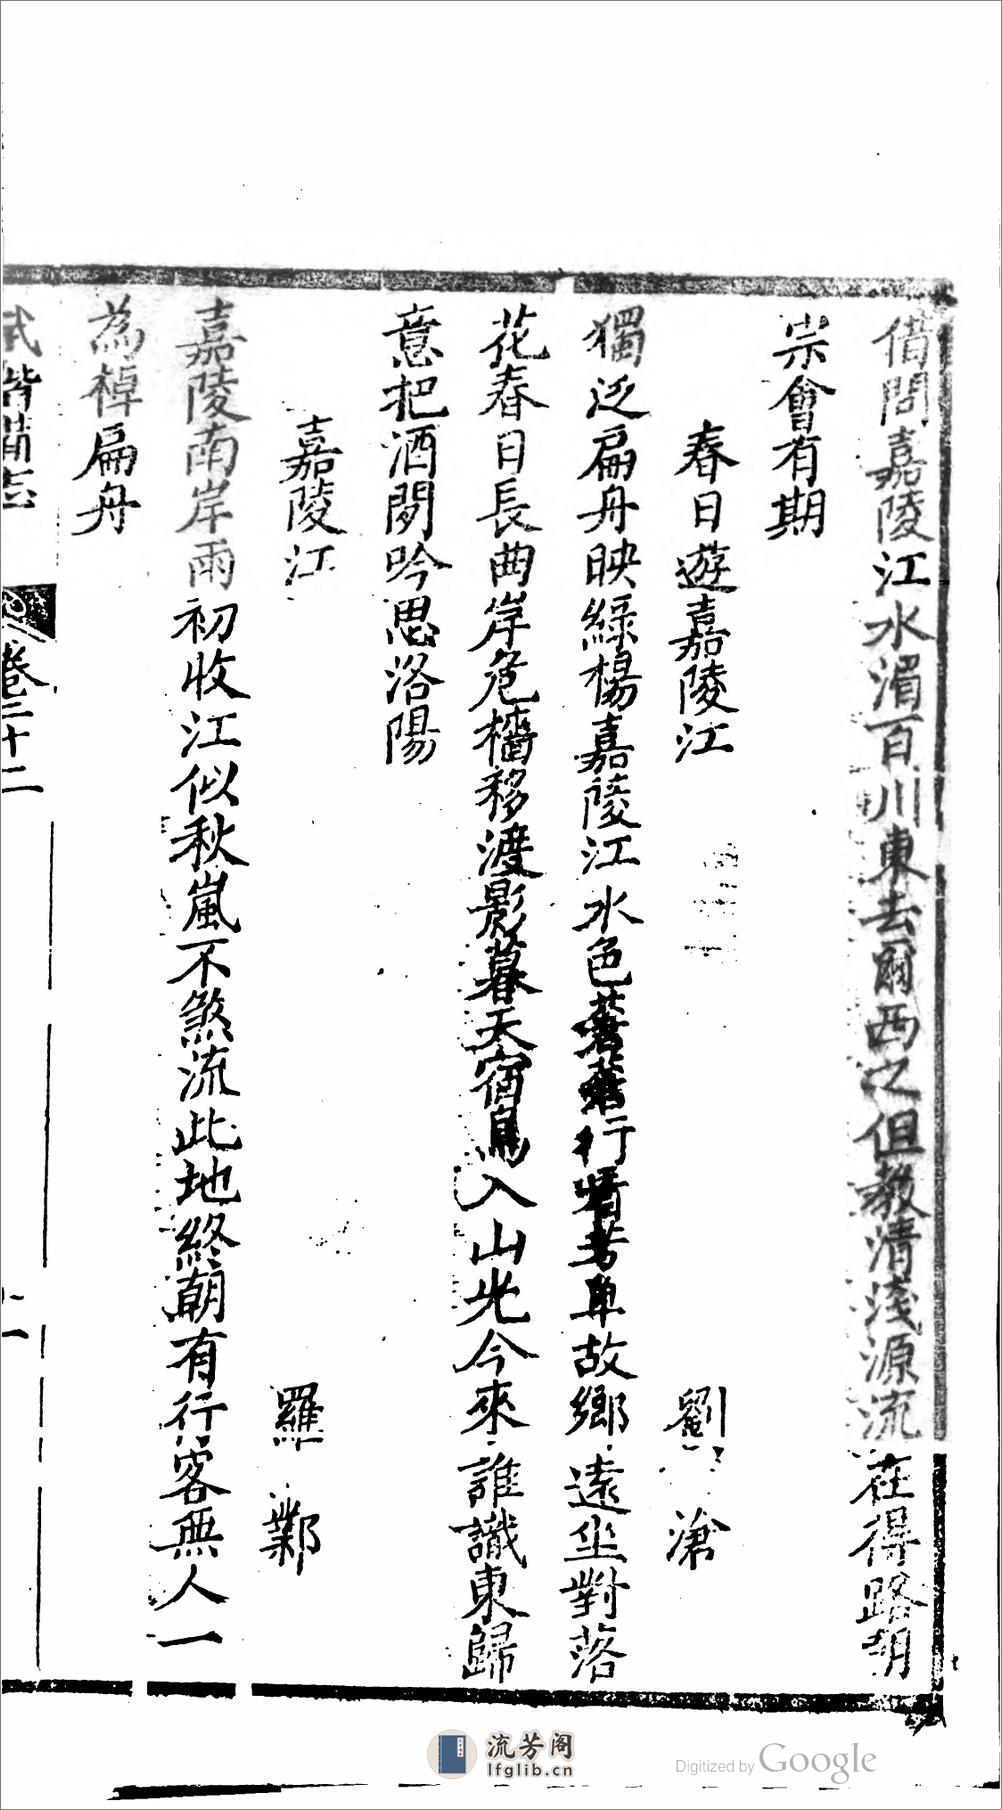 借問嘉陵江水湄百川東去爾西之但教清淺源流在得路朝
宗會有期
春日遊嘉陵江 劉滄
獨泛扁舟映綠楊嘉陵江水色蒼蒼行看芳草故鄉遠坐對落
花春日長曲岸危檣移渡影暮天宿鳥入山光今來誰識東歸
意把酒閒吟思洛陽
嘉陵江 羅鄴
嘉陵南岸雨初收江似秋嵐不煞流此地終朝有行客無人一
為棹扁舟
武階備志 卷二十二
流芳阁
lfglib.cn
Digitized by Google